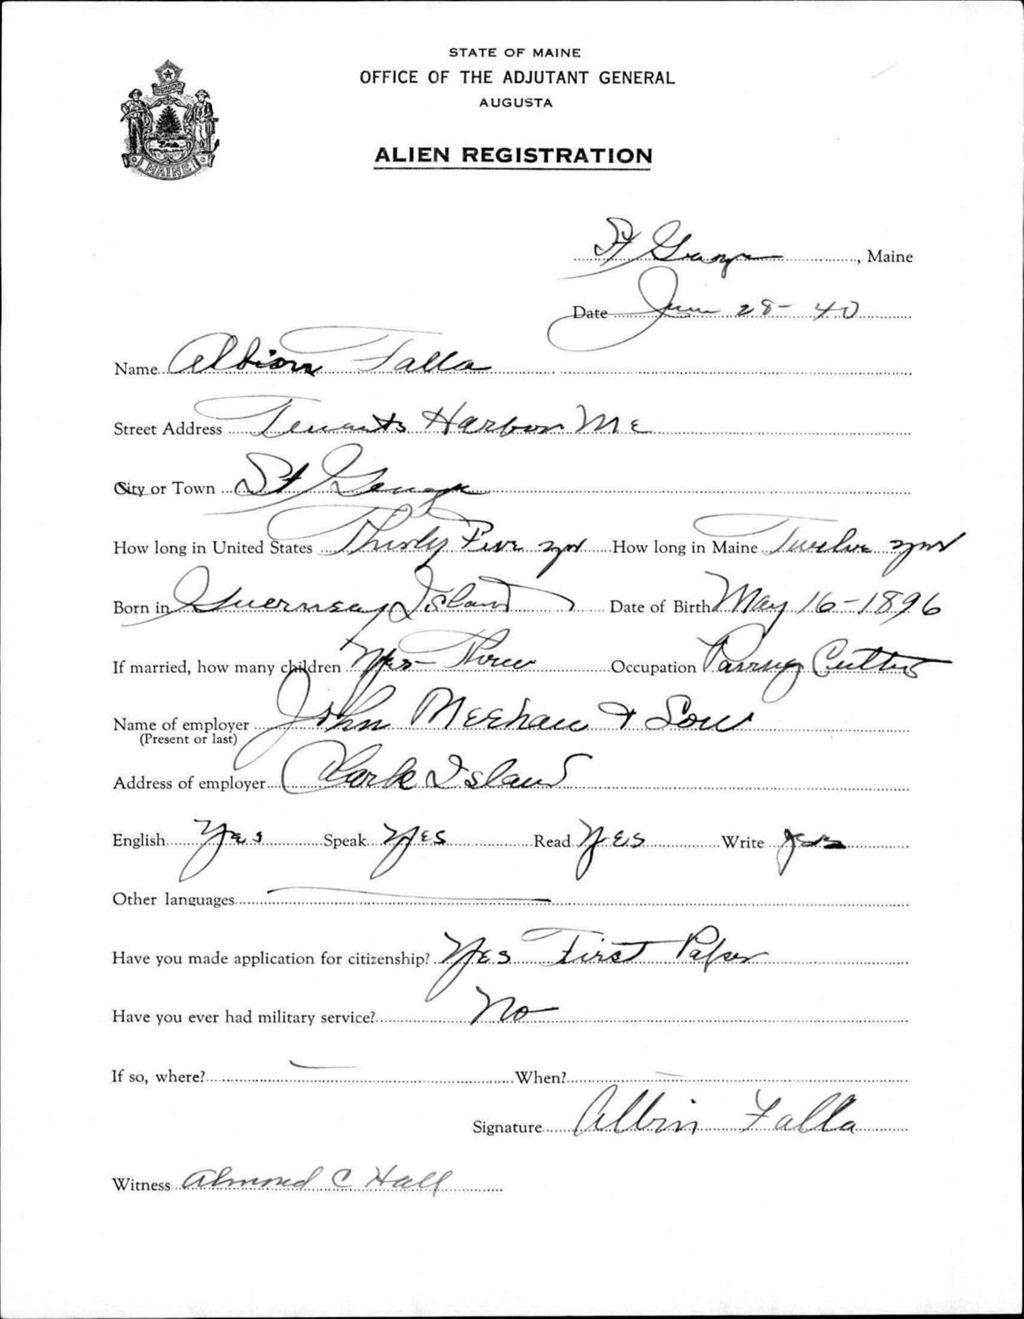 STATE OF MAINE
OFFICE OF THE ADJUTANT GENERAL
AUGUSTA
MAINE
ALIEN REGISTRATION
St George, Maine
Date June 28 - 40
Name Albion Falla
Street Address Tenants Harbor Me
City or Town St George
How long in United States Thirty Five yrs How long in Maine Twelve yrs
Born in Guernsey Island Date of Birth May 16-1896
If married, how many children Yes - Three Occupation Paving Cutter
Name of employer John Meehan & Son
(Present or last)
Address of employer Clark Island
English Yes Speak Yes Read Yes Write Yes
Other languages
Have you made application for citizenship? Yes First Paper
Have you ever had military service? No
If so, where? When?
Signature Albin Falla
Witness Almond C Hall